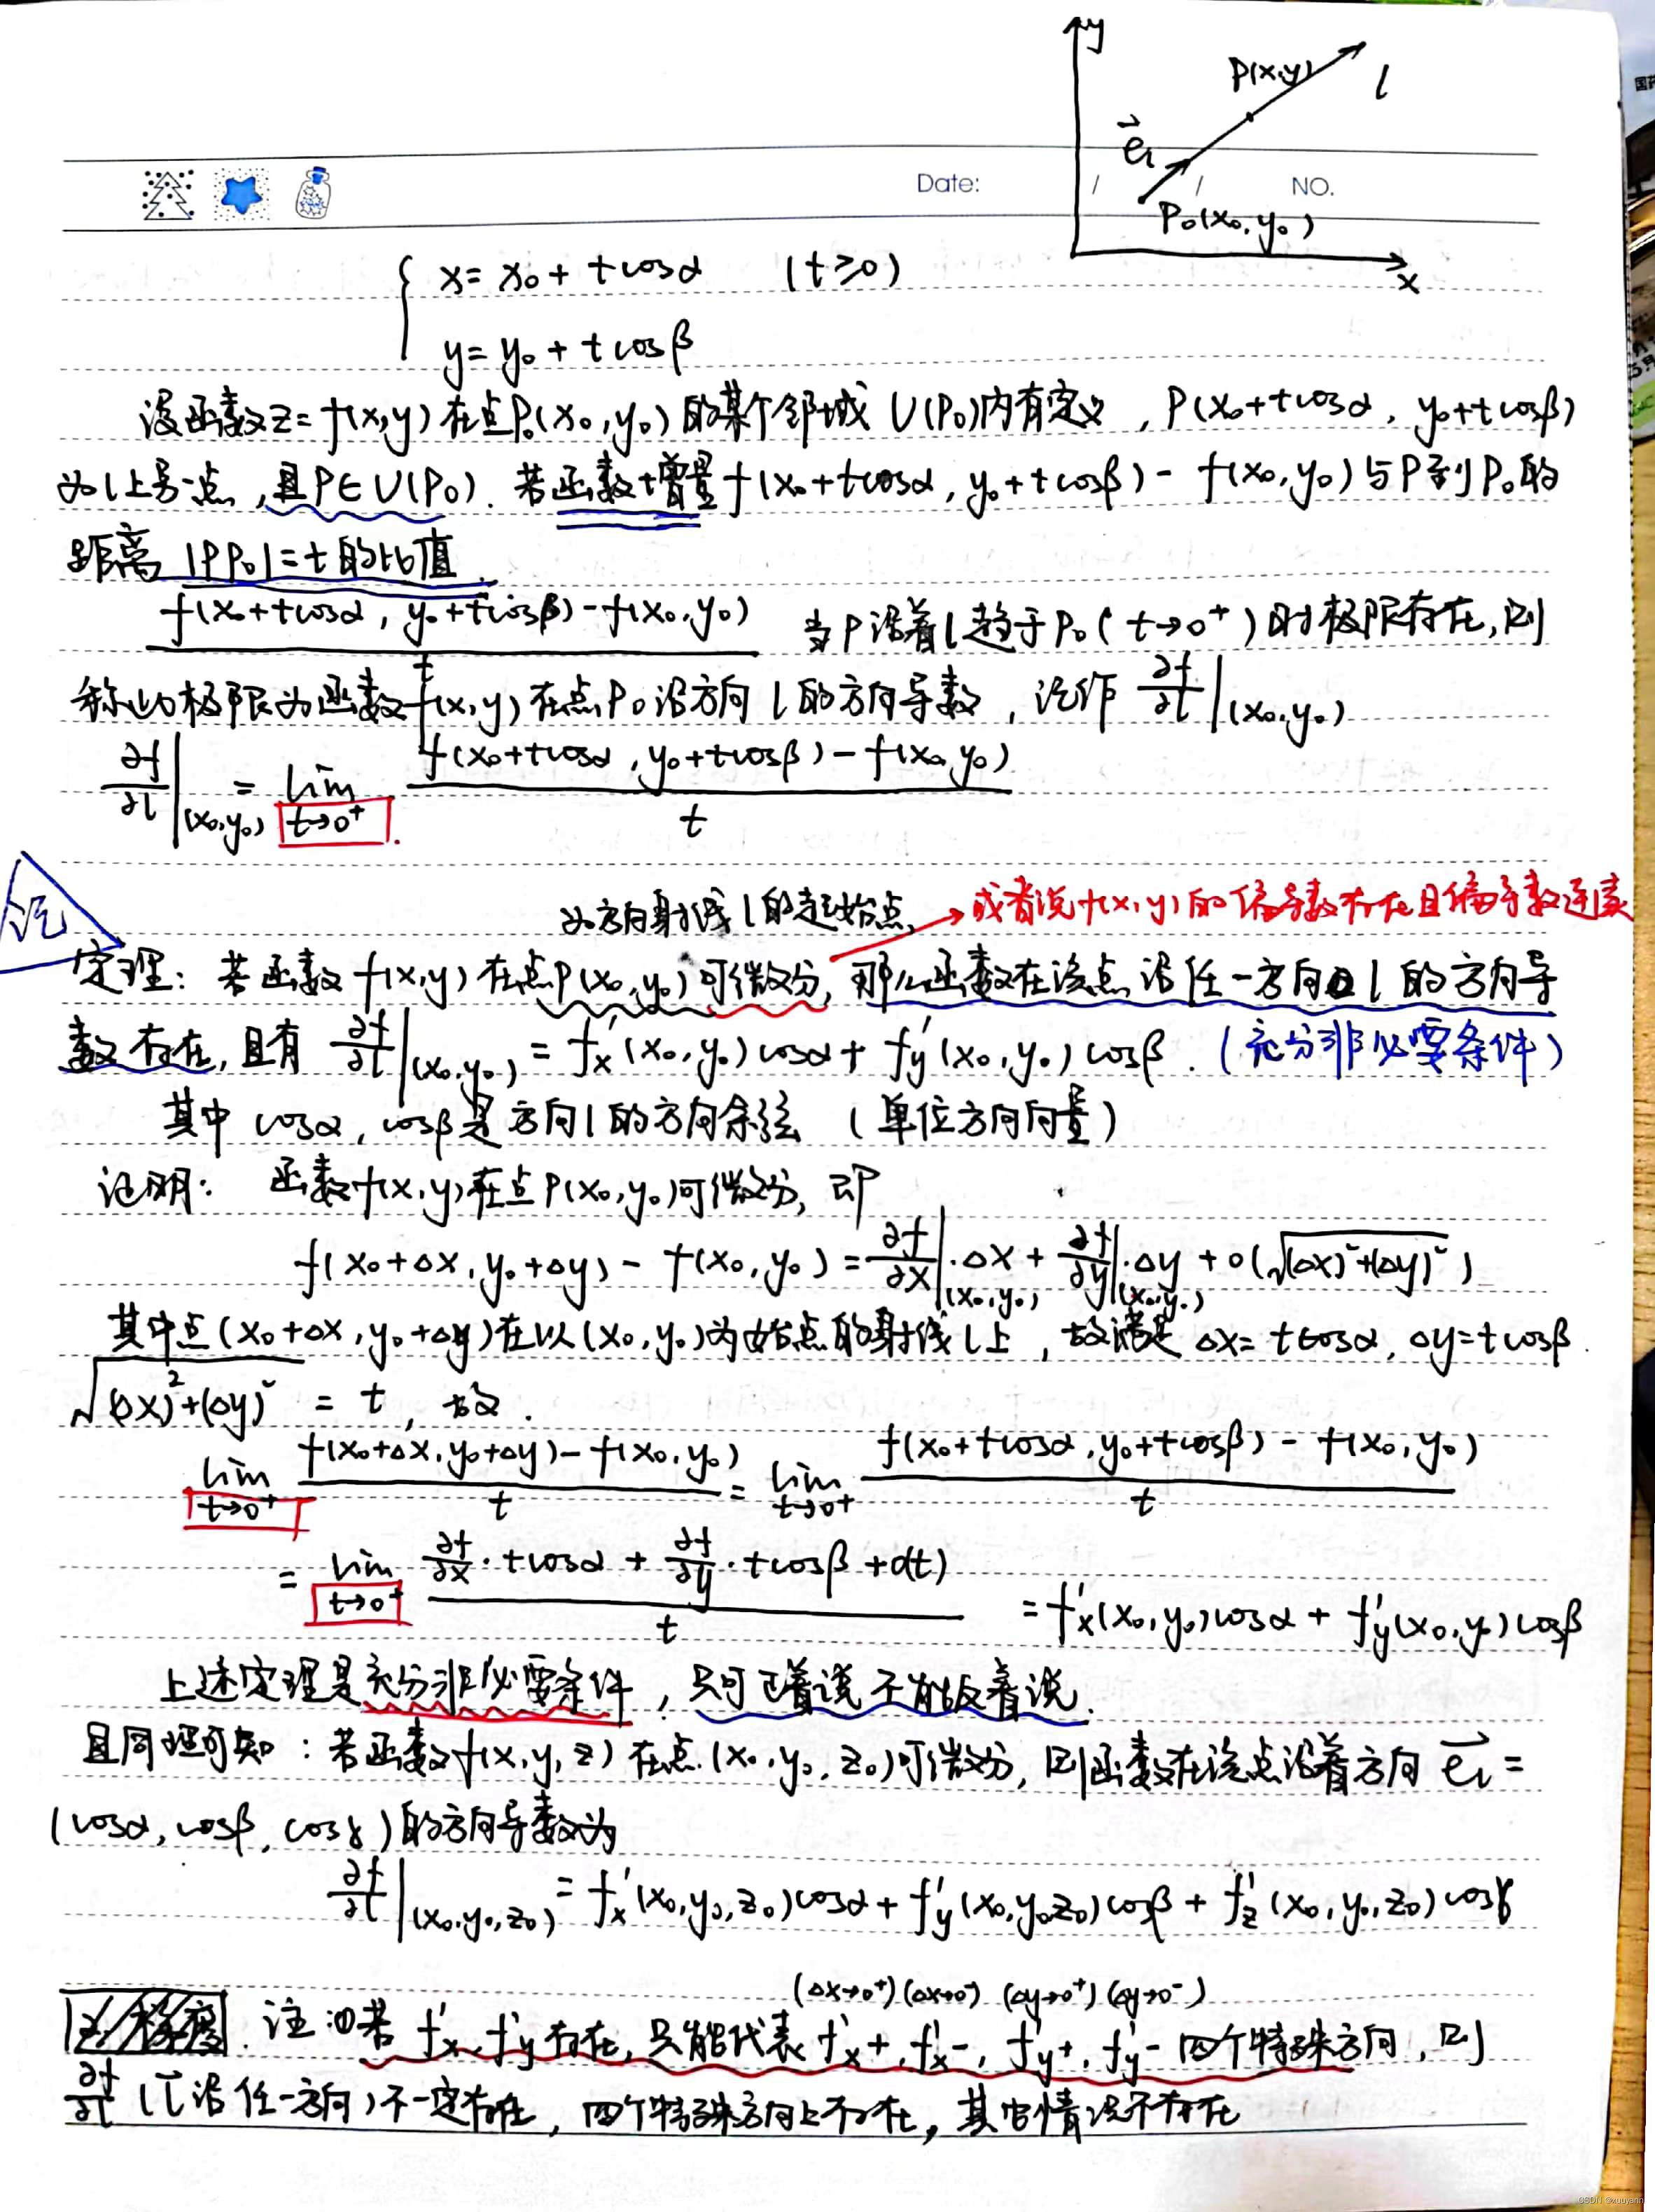 y
P(x,y)
l
e_l
P₀(x₀,y₀)
x
Date: / / NO.
国药
x = x₀ + tcosα (t≥0)
y = y₀ + tcosβ
设函数z=f(x,y)在点P₀(x₀,y₀)的某个邻域U(P₀)内有定义,P(x₀+tcosα, y₀+tcosβ)
为l上另一点,且P∈U(P₀).若函数增量f(x₀+tcosα, y₀+tcosβ) - f(x₀,y₀)与P到P₀的
距离|PP₀|=t的比值
(f(x₀+tcosα, y₀+tcosβ)-f(x₀,y₀))/t 当P沿着l趋于P₀(t→0⁺)时极限存在,则
称此极限为函数f(x,y)在点P₀沿方向l的方向导数,记作 ∂f/∂l|(x₀,y₀)
∂f/∂l|(x₀,y₀) = lim t→0⁺ (f(x₀+tcosα, y₀+tcosβ)-f(x₀,y₀))/t
为方向射线l的起始点, →或者说f(x,y)的偏导数存在且偏导数连续
记
定理:若函数f(x,y)在点P(x₀,y₀)可微分,那么函数在该点沿任一方向l的方向导
数存在,且有 ∂f/∂l|(x₀,y₀) = f'x(x₀,y₀)cosα + f'y(x₀,y₀)cosβ.(充分非必要条件)
其中cosα, cosβ是方向l的方向余弦 (单位方向向量)
证明: 函数f(x,y)在点P(x₀,y₀)可微分,即
f(x₀+Δx, y₀+Δy) - f(x₀,y₀) = ∂f/∂x|(x₀,y₀)·Δx + ∂f/∂y|(x₀,y₀)·Δy + o(√((Δx)²+(Δy)²))
其中点(x₀+Δx, y₀+Δy)在以(x₀,y₀)为始点的射线l上,故满足Δx=tcosα, Δy=tcosβ.
√((Δx)²+(Δy)²) = t, 故.
lim t→0⁺ (f(x₀+Δx, y₀+Δy)-f(x₀,y₀))/t = lim t→0⁺ (f(x₀+tcosα, y₀+tcosβ) - f(x₀,y₀))/t
= lim t→0⁺ (∂f/∂x·tcosα + ∂f/∂y·tcosβ + o(t))/t = f'x(x₀,y₀)cosα + f'y(x₀,y₀)cosβ
上述定理是充分非必要条件,只可正着说不能反着说.
且同理可知:若函数f(x,y,z)在点(x₀,y₀,z₀)可微分,则函数在该点沿着方向 e_l =
(cosα, cosβ, cosγ)的方向导数为
∂f/∂l|(x₀,y₀,z₀) = f'x(x₀,y₀,z₀)cosα + f'y(x₀,y₀,z₀)cosβ + f'z(x₀,y₀,z₀)cosγ
(Δx→0⁺)(Δx→0⁻) (Δy→0⁺)(Δy→0⁻)
注:①若f'x, f'y存在,只能代表f'x+, f'x-, f'y+, f'y-四个特殊方向,则
∂f/∂l(l沿任一方向)不一定存在,四个特殊方向上存在,其它情况不存在
CSDN @xuuyann